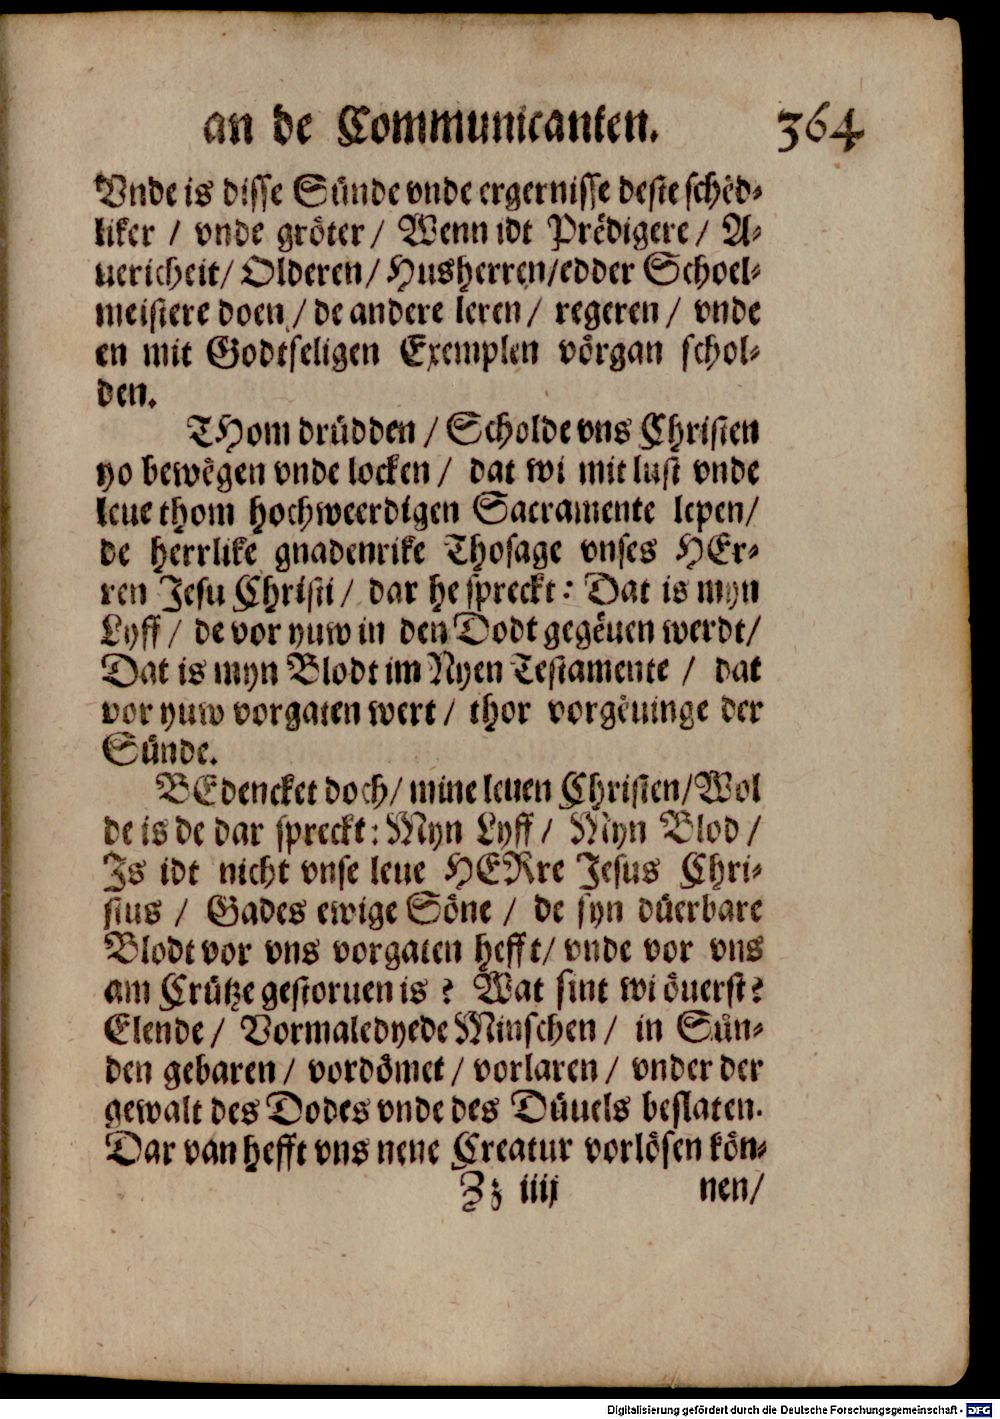 an de Communicanten. 364
Vnde is disse Sünde vnde ergernisse deste schëd⸗
liker / vnde gröter / Wenn idt Prëdigere / A⸗
uericheit / Olderen / Husherren / edder Schoel⸗
meistere doen / de andere leren / regeren / vnde
en mit Godtseligen Exemplen vörgan schol⸗
den.
THom drüdden / Scholde vns Christen
yo bewëgen vnde locken / dat wi mit lust vnde
leue thom hochweerdigen Sacramente lepen /
de herrlike gnadenrike Thosage vnses HEr⸗
ren Jesu Christi / dar he spreckt: Dat is myn
Lyff / de vor yuw in den Dodt gegëuen werdt /
Dat is myn Blodt im Nyen Testamente / dat
vor yuw vorgaten wert / thor vorgëuinge der
Sünde.
BEdencket doch / mine leuen Christen / Wol
de is de dar spreckt: Myn Lyff / Myn Blod /
Is idt nicht vnse leue HERre Jesus Chri⸗
stus / Gades ewige Söne / de syn düerbare
Blodt vor vns vorgaten hefft / vnde vor vns
am Crütze gestoruen is ? Wat sint wi öuerst?
Elende / Vormaledyede Minschen / in Sün⸗
den gebaren / vordömet / vorlaren / vnder der
gewalt des Dodes vnde des Düuels beslaten.
Dar van hefft vns nene Creatur vorlösen kön⸗
Zz iiij nen /
Digitalisierung gefördert durch die Deutsche Forschungsgemeinschaft - DFG